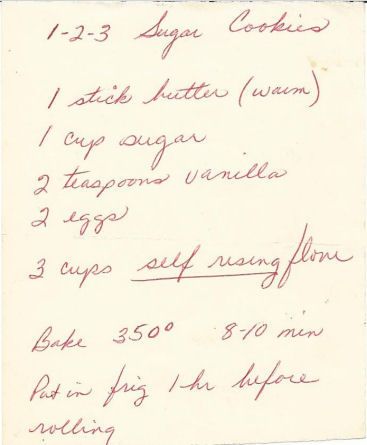 1-2-3 Sugar Cookies
1 stick butter (warm)
1 cup sugar
2 teaspoons vanilla
2 eggs
3 cups self rising flour
Bake 350° 8-10 min
Put in frig 1 hr before
rolling